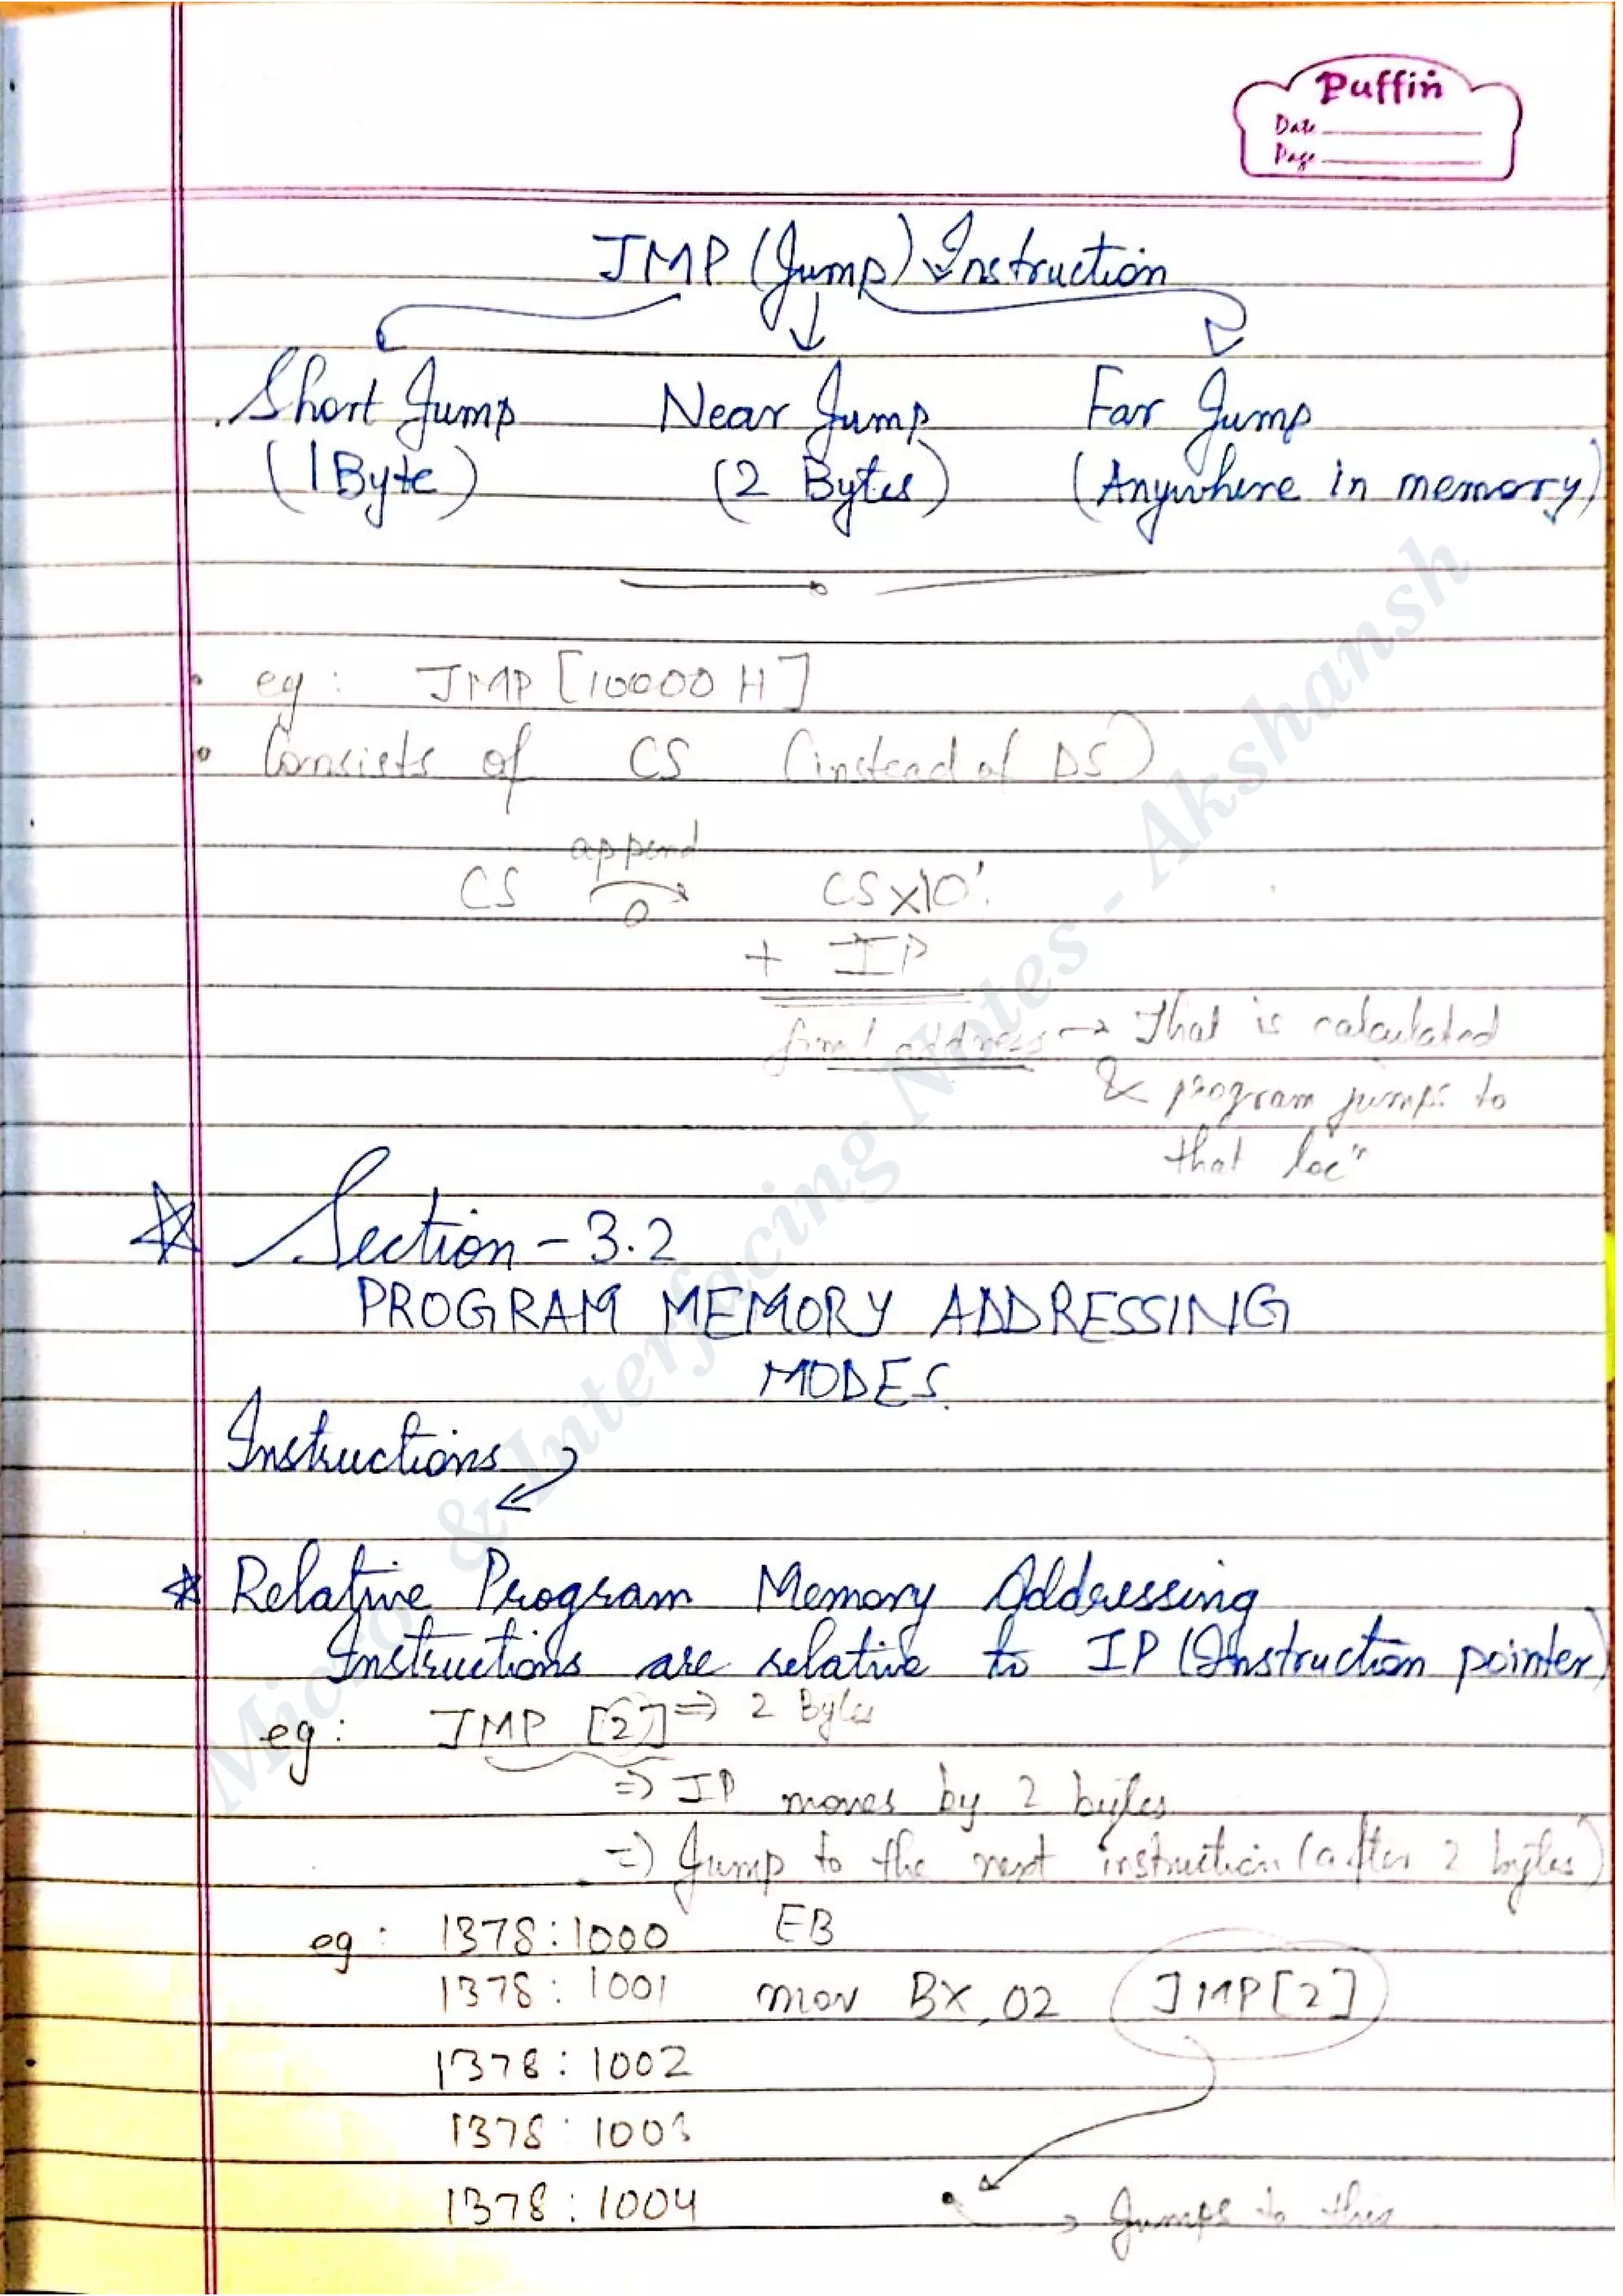 Puffin
Date
Page
JMP (Jump) Instruction
Short Jump Near Jump Far Jump
(1 Byte) (2 Bytes) (Anywhere in memory)
• eg : JMP [10000 H]
• Consists of CS (instead of DS)
append
CS 0 CS×10'
+ IP
final address → That is calculated
& program jumps to
that locⁿ
Section - 3.2
PROGRAM MEMORY ADDRESSING
MODES
Instructions
* Relative Program Memory Addressing
Instructions are relative to IP (Instruction pointer)
eg : JMP [2] ⇒ 2 Bytes
⇒ IP moves by 2 bytes
⇒ Jump to the next instruction (after 2 bytes)
eg : 1378:1000 EB
1378 : 1001 mov BX, 02 JMP[2]
1378 : 1002
1378 : 1003
1378 : 1004 → Jumps to this
Micro & Interfacing Notes - Akshansh